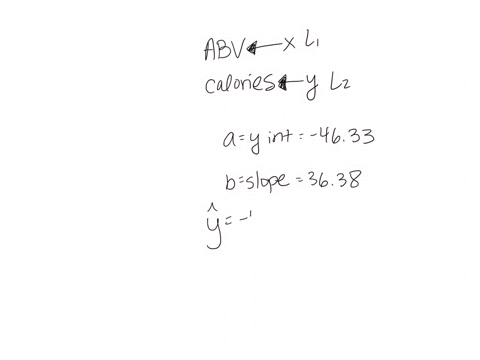 ABV ← x L₁
calories ← y L₂
a = y int = -46.33
b = slope = 36.38
ŷ = -